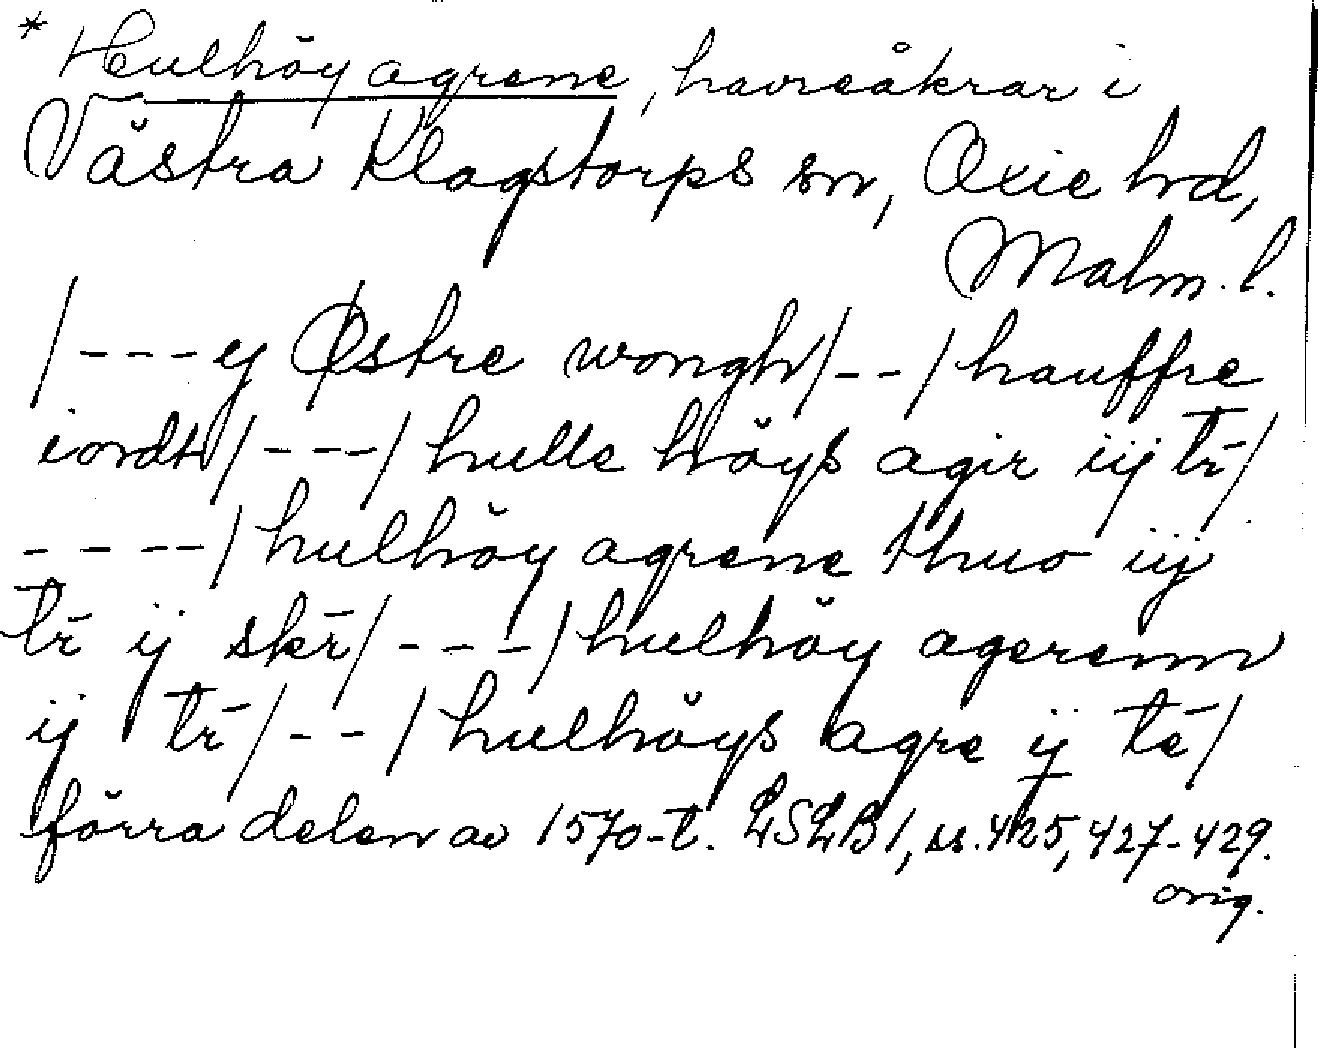 * Hulhöy agrene, havreåkrar i
Västra Klagstorps sn, Oxie hd,
Malm. l.
/---y Østre wongh/--/hauffre
iordt/---/hulle höys agir iij tr̄/
----/hulhöy agrene thuo iij
tr̄ ij skr̄/---/hulhöy agerenn
ij tr̄/--/hulhöys agre ij tē/
förra delen av 1570-t. LSLB1, ss. 425, 427-429.
orig.